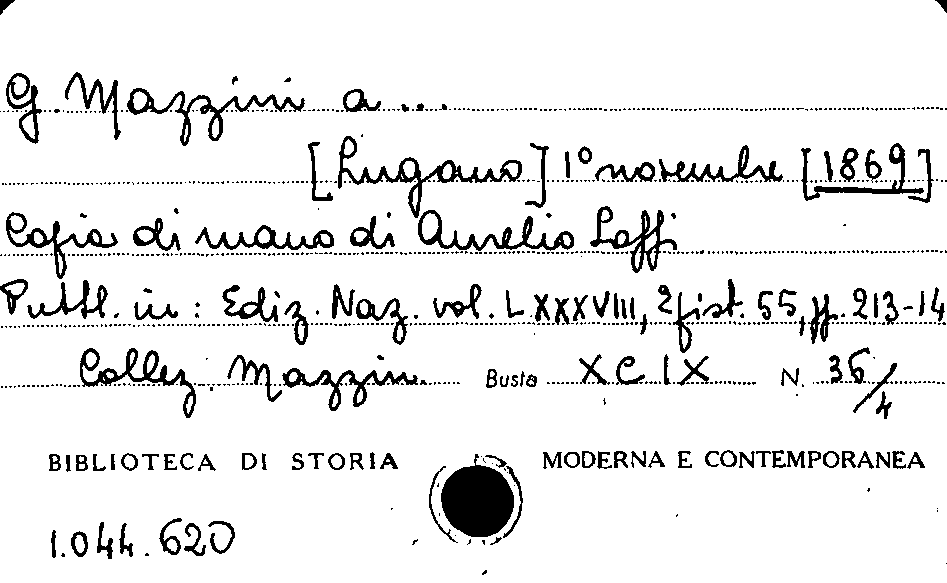 G. Mazzini a ...
[Lugano] 1° novembre [1869]
Copia di mano di Aurelio Saffi
Pubbl. in: Ediz. Naz. vol. LXXXVIII, epist. 55, pp. 213-14
Collez. Mazzin. Busta XCIX N. 36/4
BIBLIOTECA DI STORIA MODERNA E CONTEMPORANEA
1.044.620